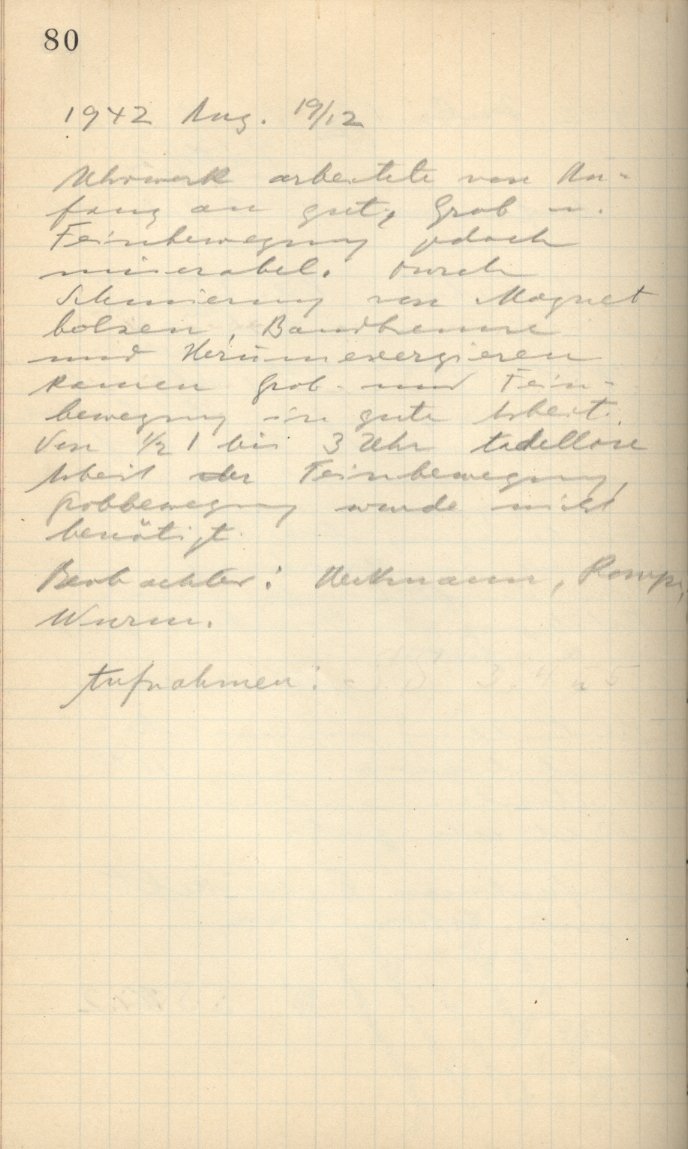 80
1942 Aug. 19/12
Uhrwerk arbeitete von An-
fang an gut, Grob u.
Feinbewegung jedoch
miserabel. Durch
Schmierung von Magnet
bolzen, Bandbremse
und Herumexergieren
kamen Grob- und Fein-
bewegung in gute Arbeit.
Von 1/2 1 bis 3 Uhr tadellose
Arbeit der Feinbewegung,
Grobbewegung wurde nicht
benötigt.
Beobachter:
Wurm.
Aufnahmen: